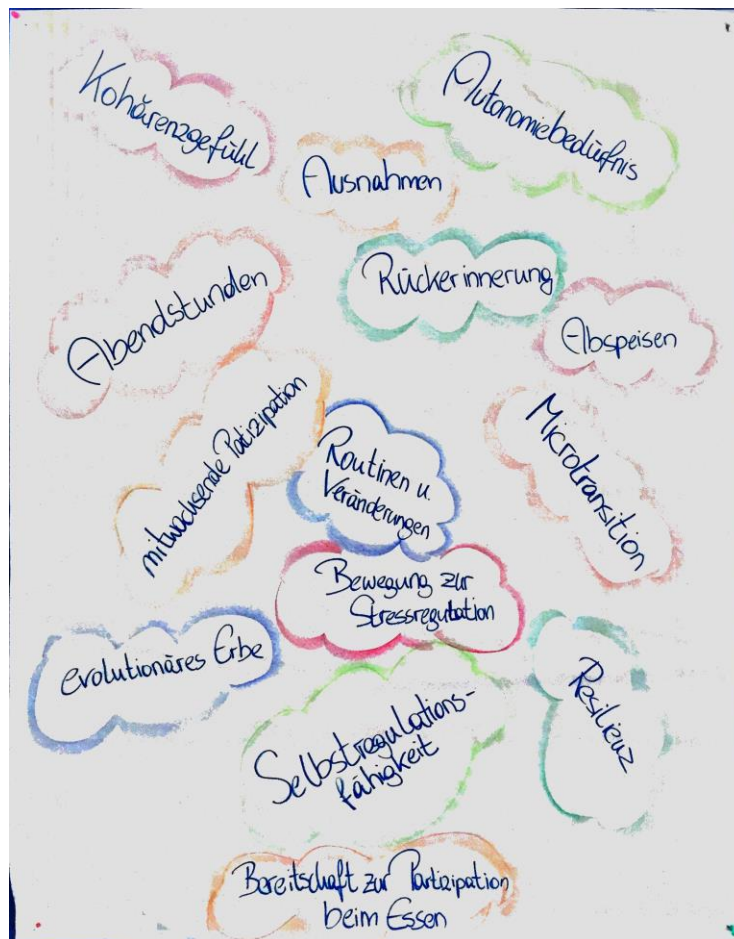 Kohärenzgefühl
Autonomiebedürfnis
Ausnahmen
Abendstunden
Rückerinnerung
Abspeisen
mitwachsende Patizipation
Routinen u.
Veränderungen
Microtransition
Bewegung zur
Stressregulation
evolutionäres Erbe
Resilienz
Selbstregulations-
fähigkeit
Bereitschaft zur Partizipation
beim Essen